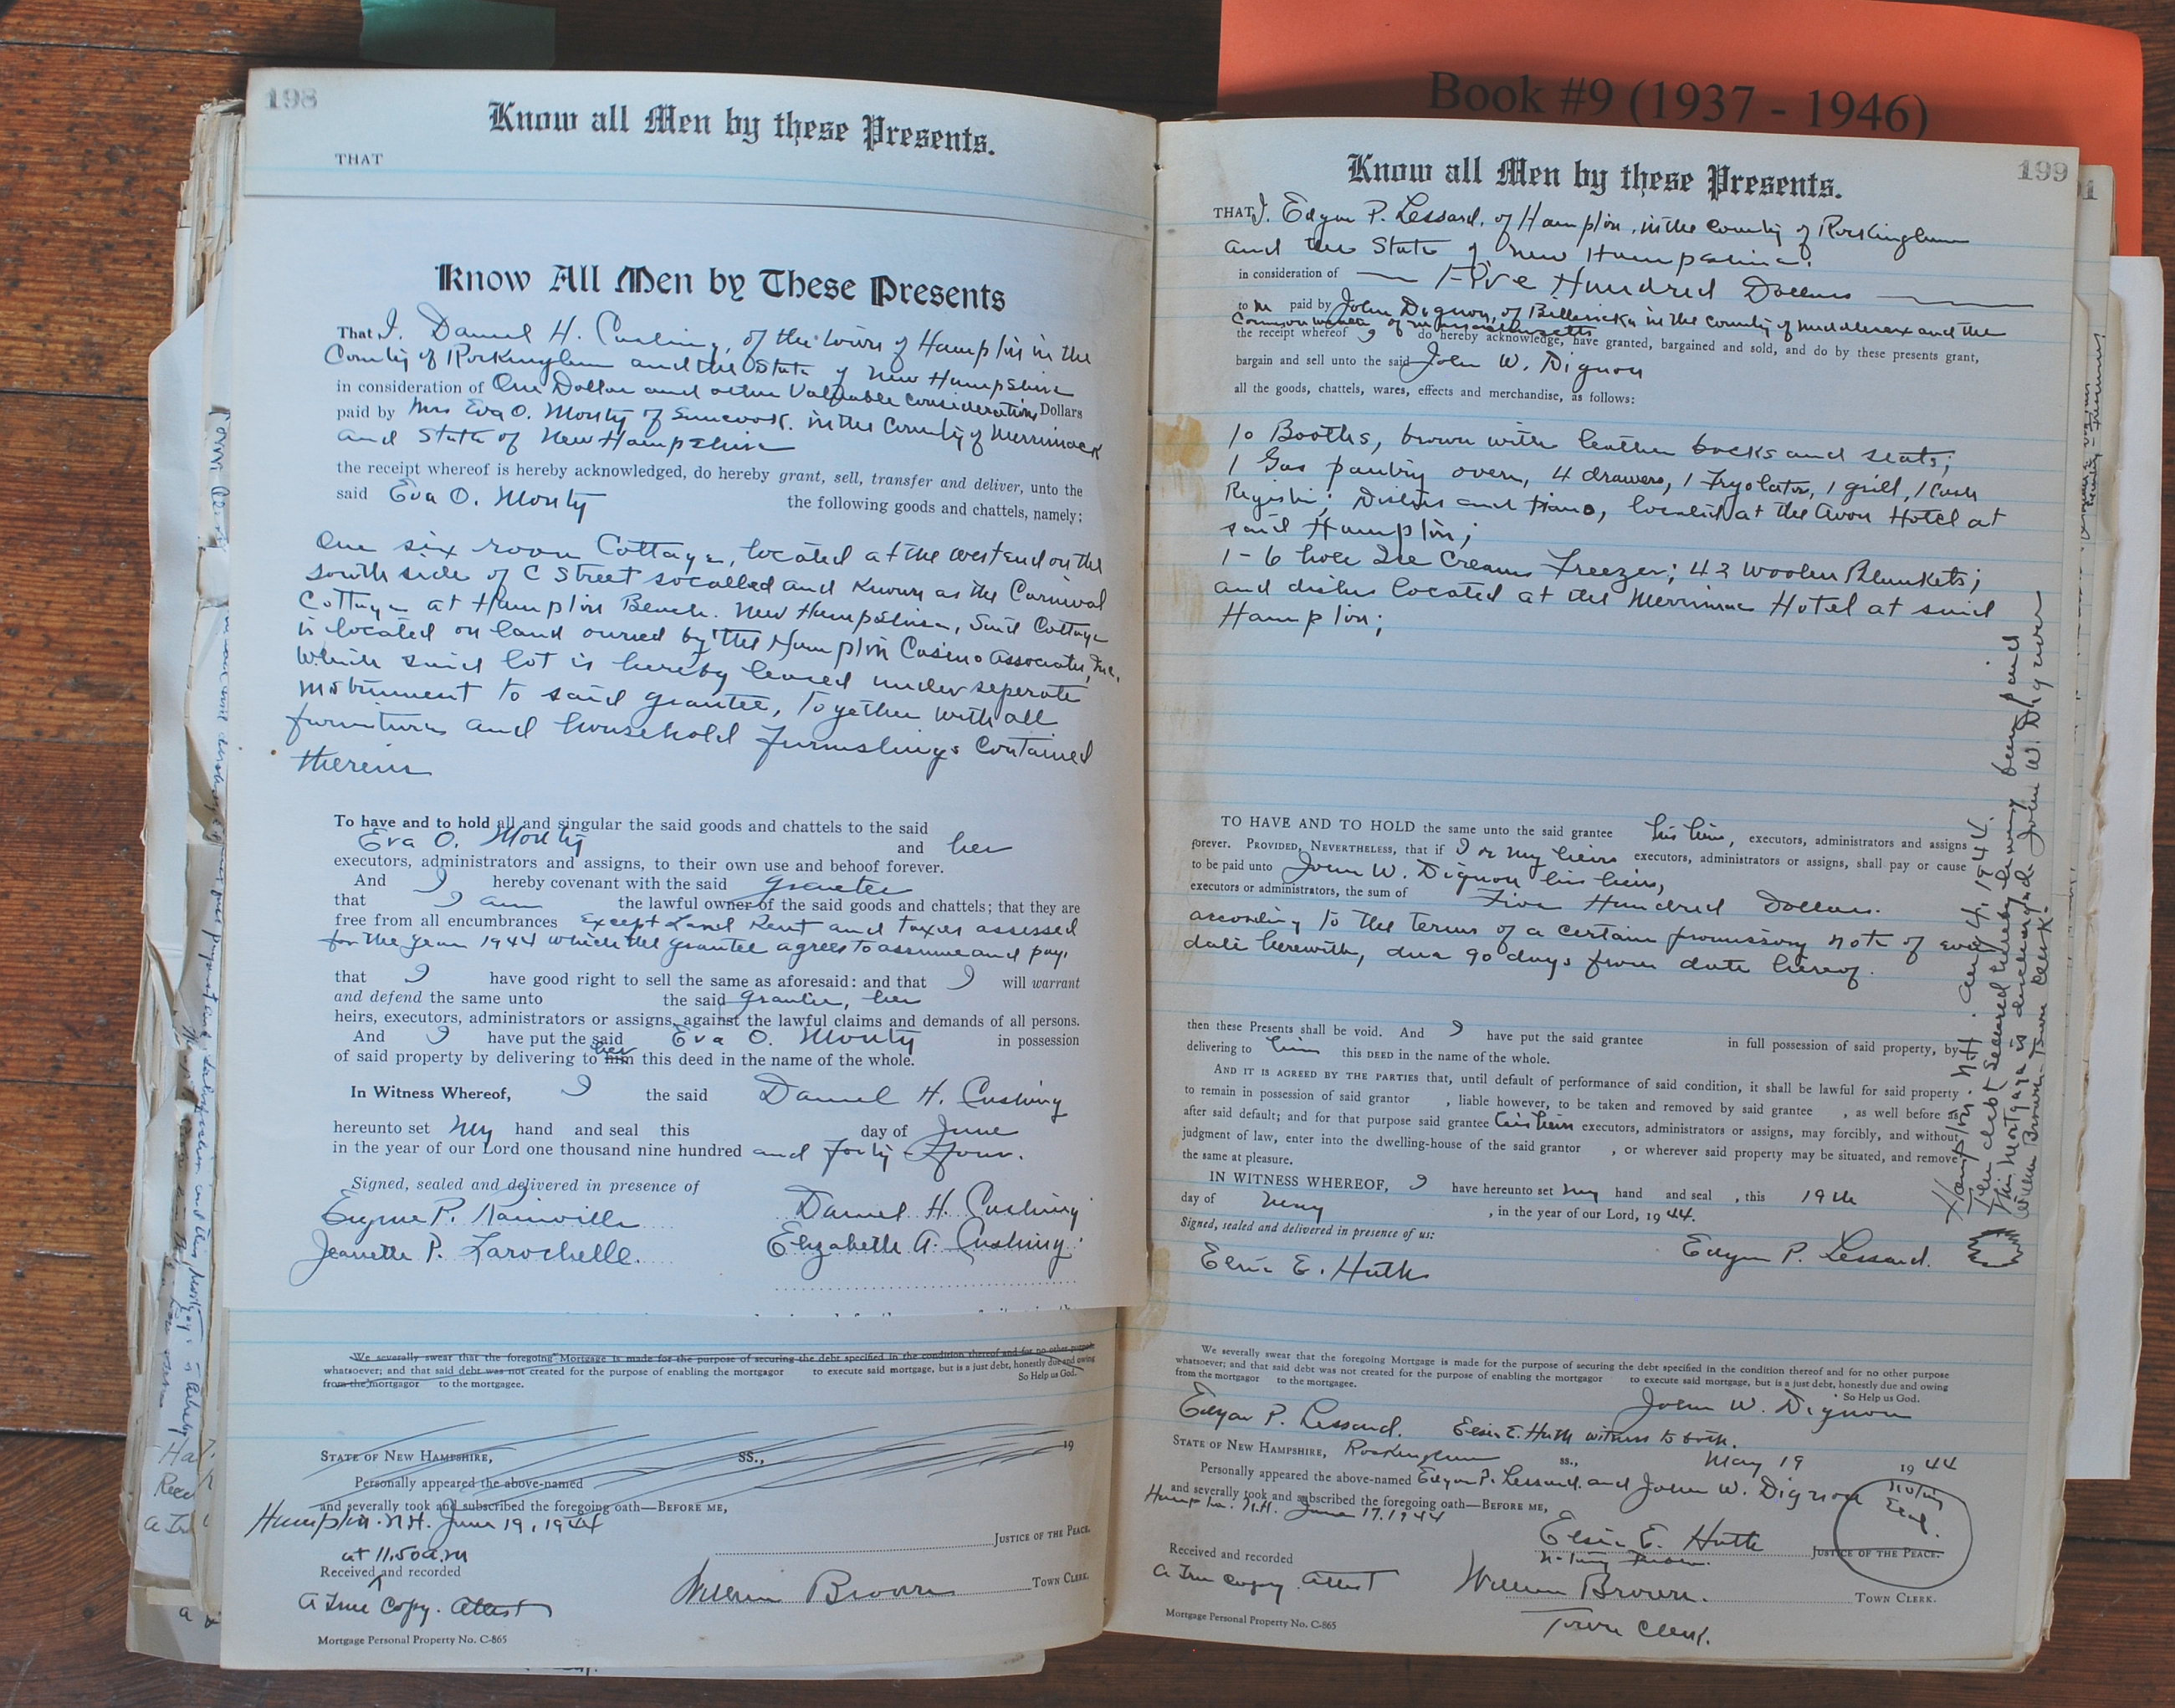 Book #9 (1937 - 1946)
198
Know all Men by these Presents.
THAT
Know All Men by These Presents
That I. Daniel H. Cushing, of the town of Hampton in the
County of Rockingham and the State of New Hampshire
in consideration of One Dollar and other Valuable considerations Dollars
paid by Mrs Eva O. Monty of Suncook. in the County of Merrimack
and State of New Hampshire
the receipt whereof is hereby acknowledged, do hereby grant, sell, transfer and deliver, unto the
said Eva O. Monty the following goods and chattels, namely:
One six room Cottage, located at the west end on the
south side of C Street socalled and known as the Carnival
Cottage at Hampton Beach. New Hampshire, Said Cottage
is located on land owned by the Hampton Casino Associates, Inc.
which said lot is hereby leased under seperate
instrument to said grantee, Together with all
furniture and household furnishings contained
therein
To have and to hold all and singular the said goods and chattels to the said
Eva O. Monty and her
executors, administrators and assigns, to their own use and behoof forever.
And I hereby covenant with the said grantee
that I am the lawful owner of the said goods and chattels; that they are
free from all encumbrances except Land Rent and taxes assessed
for the year 1944 which the grantee agrees to assume and pay.
that I have good right to sell the same as aforesaid: and that I will warrant
and defend the same unto the said grantee, her
heirs, executors, administrators or assigns, against the lawful claims and demands of all persons.
And I have put the said Eva O. Monty in possession
of said property by delivering to him her this deed in the name of the whole.
In Witness Whereof, I the said Daniel H. Cushing
hereunto set my hand and seal this day of June
in the year of our Lord one thousand nine hundred and forty four.
Signed, sealed and delivered in presence of
Eugene P. Rainville Daniel H. Cushing
Jeanette P. Larochelle. Elizabeth A. Cushing
We severally swear that the foregoing Mortgage is made for the purpose of securing the debt specified in the condition thereof and for no other purpose
whatsoever; and that said debt was not created for the purpose of enabling the mortgagor to execute said mortgage, but is a just debt, honestly due and owing
from the mortgagor to the mortgagee. So Help us God.
STATE OF NEW HAMPSHIRE, SS., 19
Personally appeared the above-named
and severally took and subscribed the foregoing oath—BEFORE ME,
Hampton. N.H. June 19, 1944
JUSTICE OF THE PEACE.
at 11.50 a.m
Received and recorded
William Brown TOWN CLERK.
A True Copy. Attest
Mortgage Personal Property No. C-865
199
Know all Men by these Presents.
THAT I. Edgar P. Lessard, of Hampton, in the County of Rockingham
and the State of New Hampshire.
in consideration of Five Hundred Dollars
to me paid by John Dignon, of Billerica in the County of Middlesex and the
Commonwealth of Massachusetts
the receipt whereof I do hereby acknowledge, have granted, bargained and sold, and do by these presents grant,
bargain and sell unto the said John W. Dignon
all the goods, chattels, wares, effects and merchandise, as follows:
10 Booths, brown with leather backs and seats;
1 Gas pastry oven, 4 drawers, 1 Fryolator, 1 grill, 1 Cash
Register; Dishes and piano, located at the Avon Hotel at
said Hampton;
1 - 6 hole Ice Cream Freezer; 43 Woolen Blankets;
and dishes located at the Merrimac Hotel at said
Hampton;
TO HAVE AND TO HOLD the same unto the said grantee his heirs, executors, administrators and assigns
forever. PROVIDED, NEVERTHELESS, that if I or my heirs executors, administrators or assigns, shall pay or cause
to be paid unto John W. Dignon his heirs,
executors or administrators, the sum of Five Hundred Dollars.
according to the terms of a certain promissory note of even
date herewith, due 90 days from date hereof.
then these Presents shall be void. And I have put the said grantee in full possession of said property, by
delivering to him this DEED in the name of the whole.
AND IT IS AGREED BY THE PARTIES that, until default of performance of said condition, it shall be lawful for said property
to remain in possession of said grantor , liable however, to be taken and removed by said grantee , as well before as
after said default; and for that purpose said grantee his heirs executors, administrators or assigns, may forcibly, and without
judgment of law, enter into the dwelling-house of the said grantor , or wherever said property may be situated, and remove
the same at pleasure.
IN WITNESS WHEREOF, I have hereunto set my hand and seal , this 19th
day of May , in the year of our Lord, 1944.
Signed, sealed and delivered in presence of us:
Elsie E. Huth Edgar P. Lessard.
We severally swear that the foregoing Mortgage is made for the purpose of securing the debt specified in the condition thereof and for no other purpose
whatsoever; and that said debt was not created for the purpose of enabling the mortgagor to execute said mortgage, but is a just debt, honestly due and owing
from the mortgagor to the mortgagee. So Help us God.
John W. Dignon
Edgar P. Lessard. Elsie E. Huth witness to both.
STATE OF NEW HAMPSHIRE, Rockingham ss., May 19 1944
Personally appeared the above-named Edgar P. Lessard and John W. Dignon
and severally took and subscribed the foregoing oath—BEFORE ME,
Notary Seal.
Hampton. N.H. June 17, 1944
Elsie E. Huth JUSTICE OF THE PEACE.
Notary Public.
Received and recorded
A True Copy. Attest William Brown. TOWN CLERK.
Town Clerk.
Mortgage Personal Property No. C-865
Hampton. N.H. Aug 4, 1944.
The debt secured hereby having been paid
This Mortgage is discharged. John W. Dignon
William Brown Town Clerk.